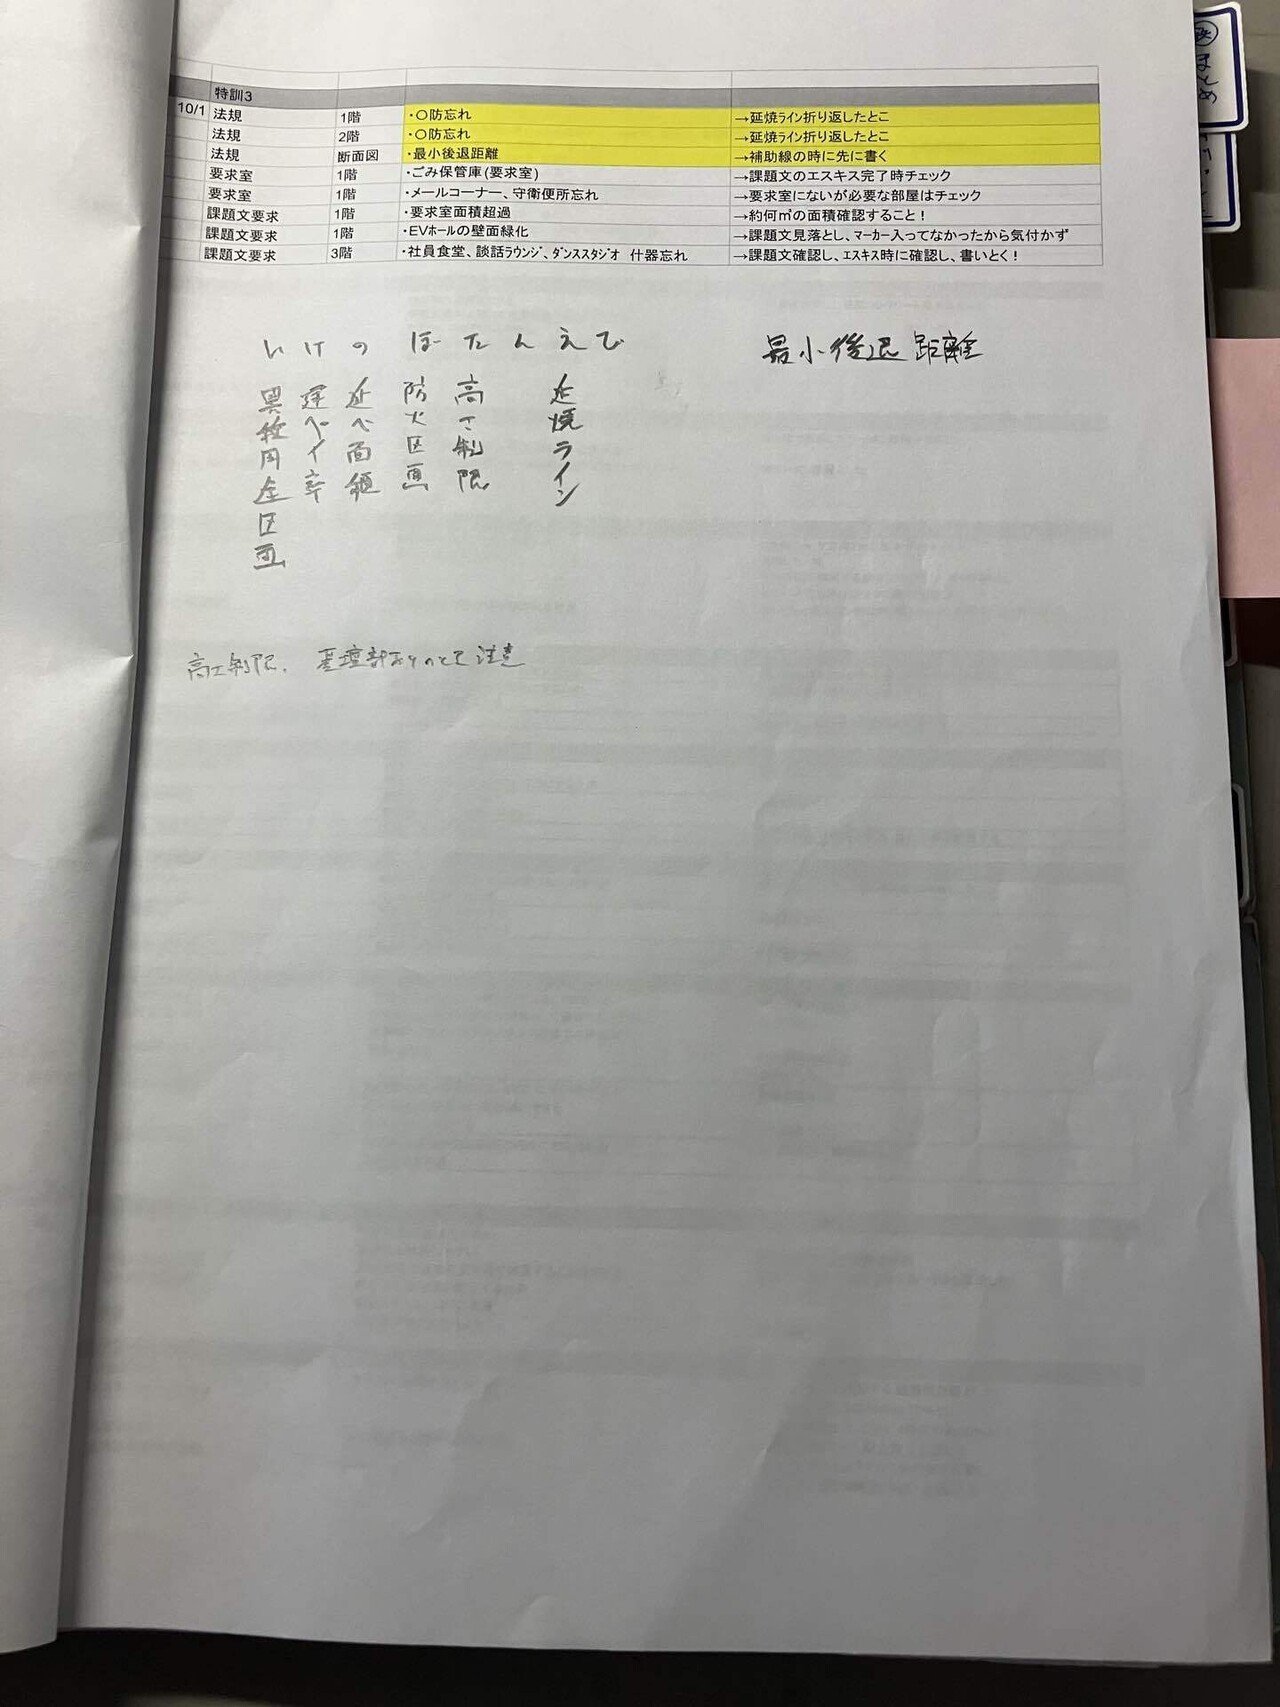 特訓3
10/1 法規 1階 ・〇防忘れ →延焼ﾗｲﾝ折り返したとこ
法規 2階 ・〇防忘れ →延焼ﾗｲﾝ折り返したとこ
法規 断面図 ・最小後退距離 →補助線の時に先に書く
要求室 1階 ・ごみ保管庫(要求室) →課題文のエスキス完了時チェック
要求室 1階 ・メールコーナー、守衛便所忘れ →要求室にないが必要な部屋はチェック
課題文要求 1階 ・要求室面積超過 →約何㎡の面積確認すること！
課題文要求 1階 ・EVﾎｰﾙの壁面緑化 →課題文見落とし、ﾏｰｶｰ入ってなかったから気付かず
課題文要求 3階 ・社員食堂、談話ﾗｳﾝｼﾞ、ﾀﾞﾝｽｽﾀｼﾞｵ 什器忘れ →課題文確認し、ｴｽｷｽ時に確認し、書いとく！
いけのぼたんえび
最小後退距離
異種用途区画
建ペイ率
延べ面積
防火区画
高さ制限
延焼ライン
高さ制限、
注意
まとめ